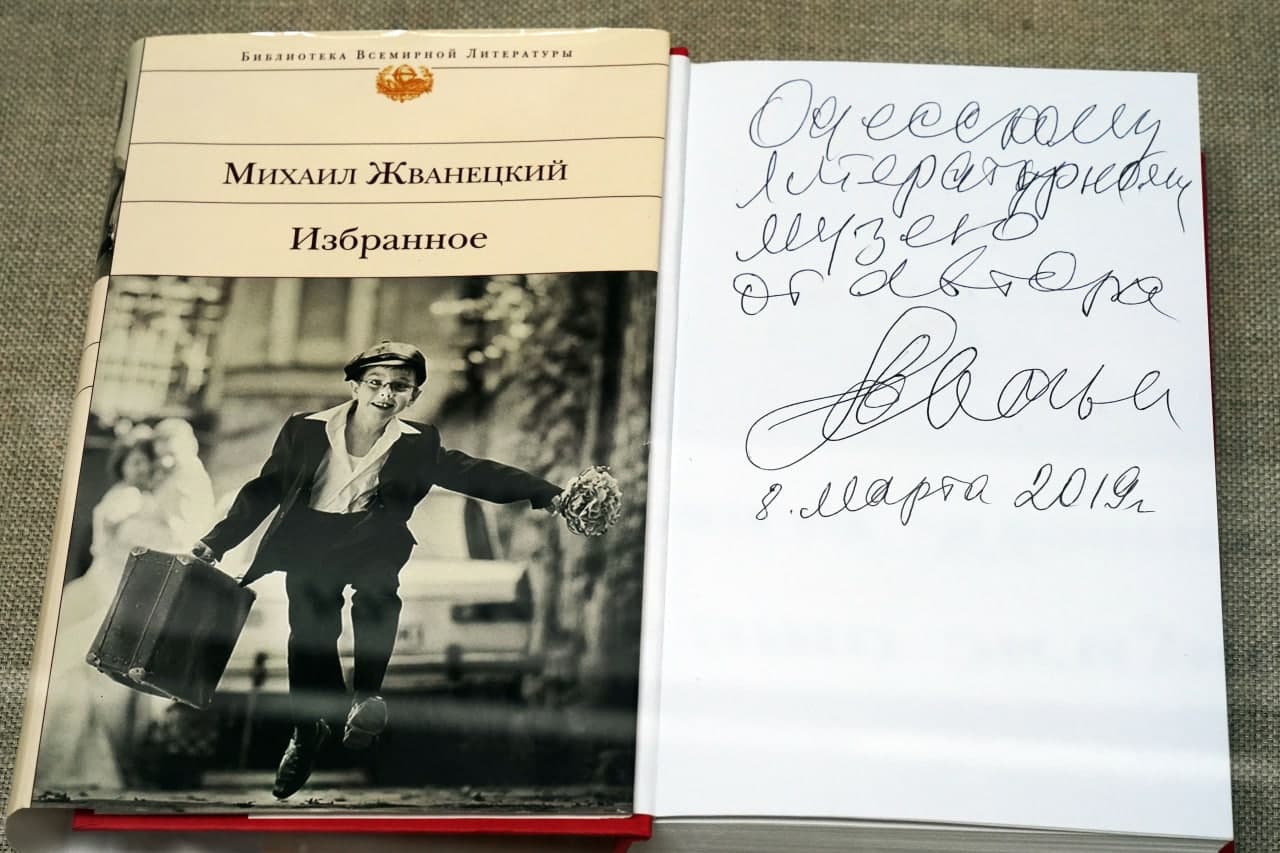 Библиотека Всемирной Литературы
Михаил Жванецкий
Избранное
Одесскому
литературному
музею
от автора
8. марта 2019г